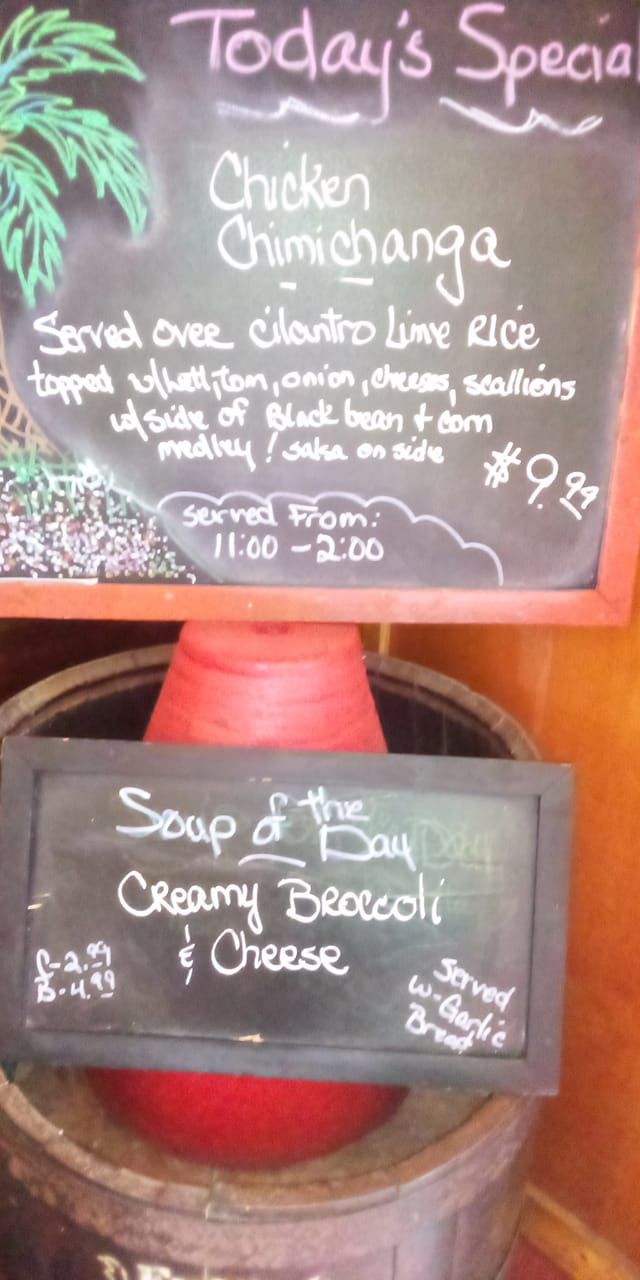 Today's Special
Chicken
Chimichanga
Served over cilantro Lime Rice
topped w/lett, tom, onion, cheeses, scallions
w/side of Black bean + corn
medley! salsa on side
$9.99
served From:
11:00 - 2:00
Soup of the
Day
Creamy Broccoli
& Cheese
C-2.99
B-4.99
Served
w-Garlic
Bread